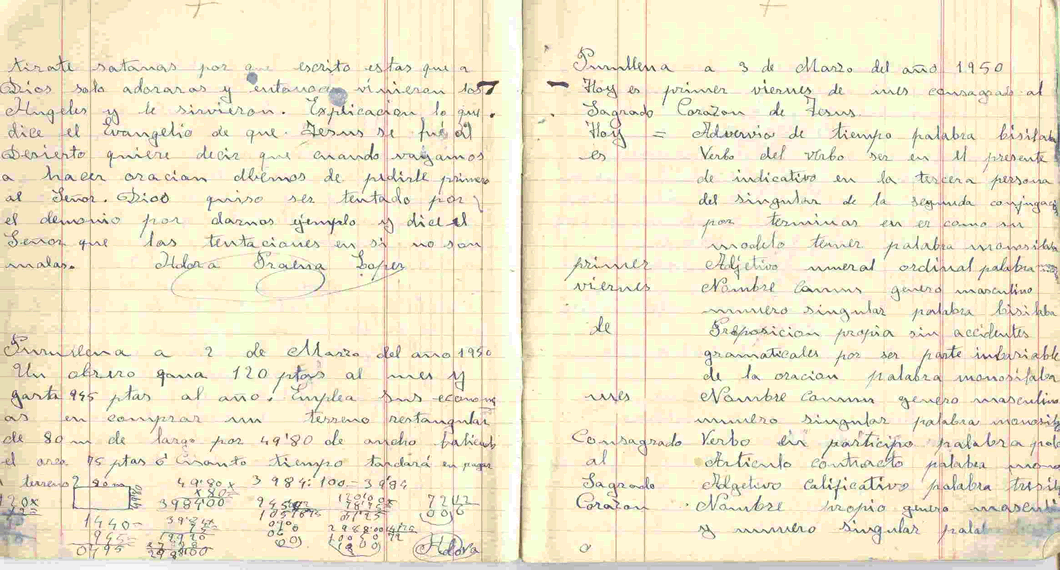 tirate satanas por que escrito estas que a
Dios solo adoraras y entonces vinieron los
Angeles y le sirvieron. Explicacion lo que
dice el Evangelio de que Jesus se fue al
Desierto quiere decir que cuando vayamos
a hacer oracion dbemos de pedirle primero
al Señor. Dios quiso ser tentado por
el demonio por darnos ejemplo y dice el
Señor que las tentaciones en si no son
malas. Adora Praena Lopez
Purullena a 2 de Marzo del año 1950
Un obrero gana 120 ptas al mes y
gasta 945 ptas al año. Emplea sus econom
as en comprar un terreno restangular
de 80 m de largo por 49'80 de ancho
el area 75 ptas ¿ Cuanto tiempo tardará en pagar
terreno? 80 m 49'80 x 3984:100=39'84
x 80
398400
1440-
945
0495
Adora
Purullena a 3 de Marzo del año 1950
Hoy es primer viernes de mes consagrado al
Sagrado Corazon de Jesus.
Hoy = Advervio de tiempo palabra bisilaba
es Verbo del verbo ser en el presente
de indicativo en la tercera persona
del singular de la segunda conjugaci
por terminar en er como su
modelo temer palabra monosilaba
primer Adjetivo numeral ordinal palabra
viernes Nombre comun genero masculino
numero singular palabra bisilaba
de Preposicion propia sin accidentes
gramaticales por ser parte invariable
de la oracion palabra monosilaba
mes Nombre comun genero masculino
numero singular palabra monosilab
Consagrado Verbo en participio palabra poli
al Articulo contracto palabra mono
Sagrado Adgetivo calificativo palabra trisila
Corazon Nombre propio genero masculi
y numero singular palab